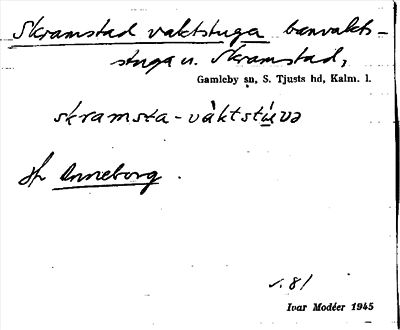 Skramstad vaktstuga banvakts-
stuga u. Skramstad,
Gamleby sn, S. Tjusts hd, Kalm. l.
skramsta-vàktstúvə
Anneborg.
s. 81
Ivar Modéer 1945